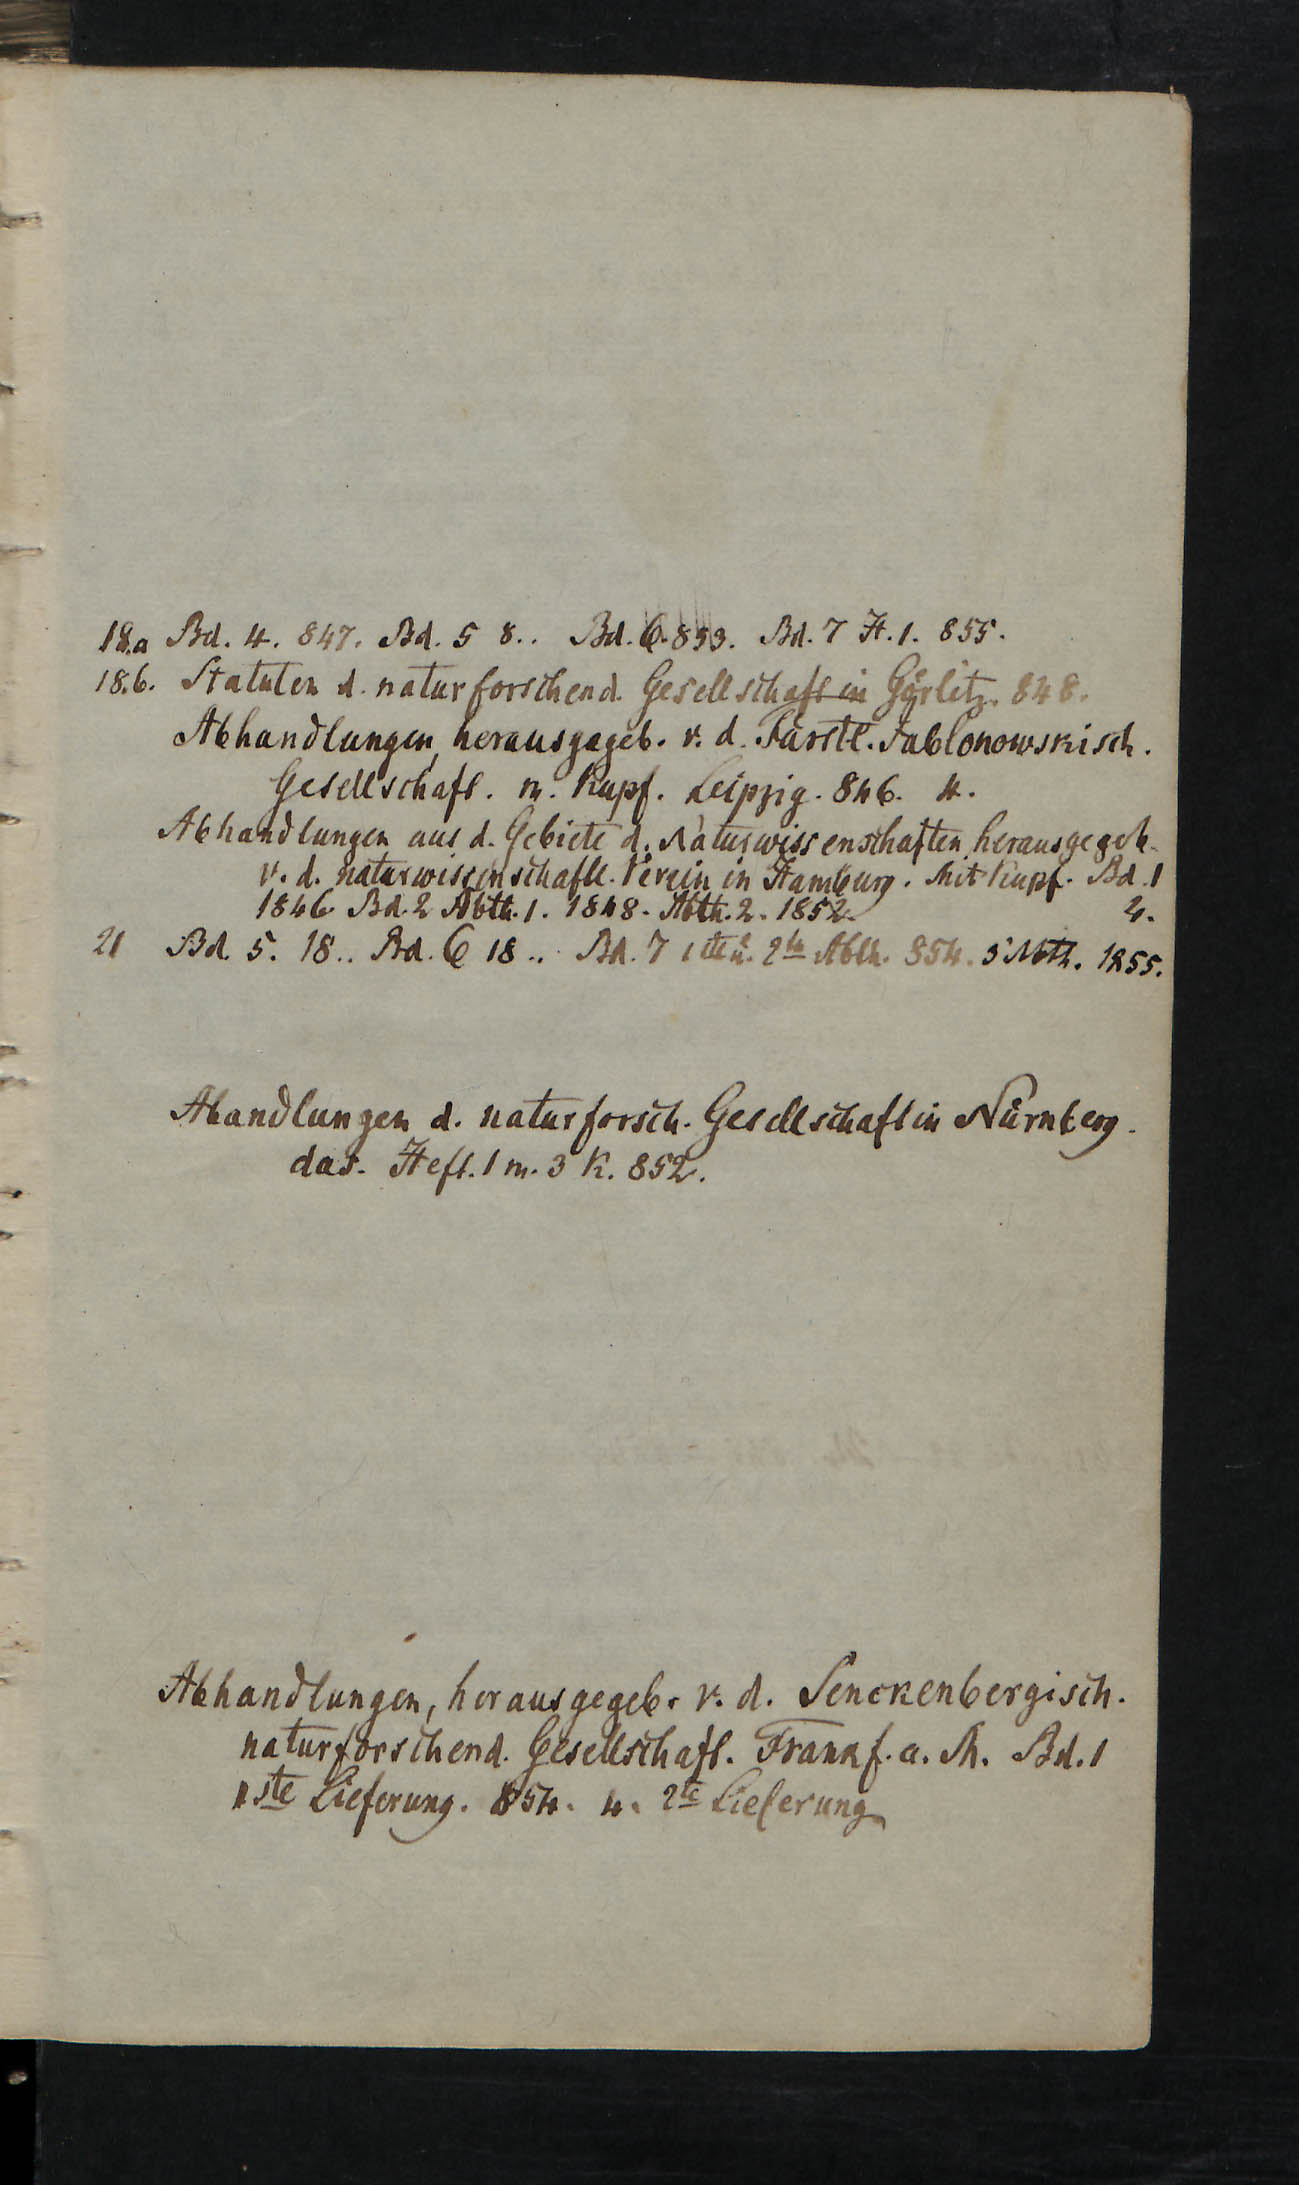 18.a Bd. 4. 847. Bd. 5 8.. Bd. 6. 853. Bd. 7 H. 1. 855.
18.b. Statuten d. naturforschend. Gesellschaft in Görlitz. 848.
Abhandlungen, herausgegeb. v. d. Fürstl. Jablonowskisch.
Gesellschaft. m. Kupf. Leipzig. 846. 4.
Abhandlungen aus d. Gebiete d. Naturwissenschaften herausgegeb.
v. d. naturwissenschaftl. Verein in Hamburg. Mit Kupf. Bd. 1
1846 Bd. 2 Abth. 1. 1848. Abth. 2. 1852. 4.
21 Bd. 5. 18.. Bd. 6 18.. Bd. 7 1te u. 2te Abth. 854. 3 Abth. 1855.
Abandlungen d. naturforsch. Gesellschaft in Nürnberg.
das. Heft. 1 m. 3 K. 852.
Abhandlungen, herausgegeb. v. d. Senckenbergisch.
naturforschend. Gesellschaft. Frankf. a. M. Bd. 1
1ste Lieferung. 854. 4. 2te Lieferung